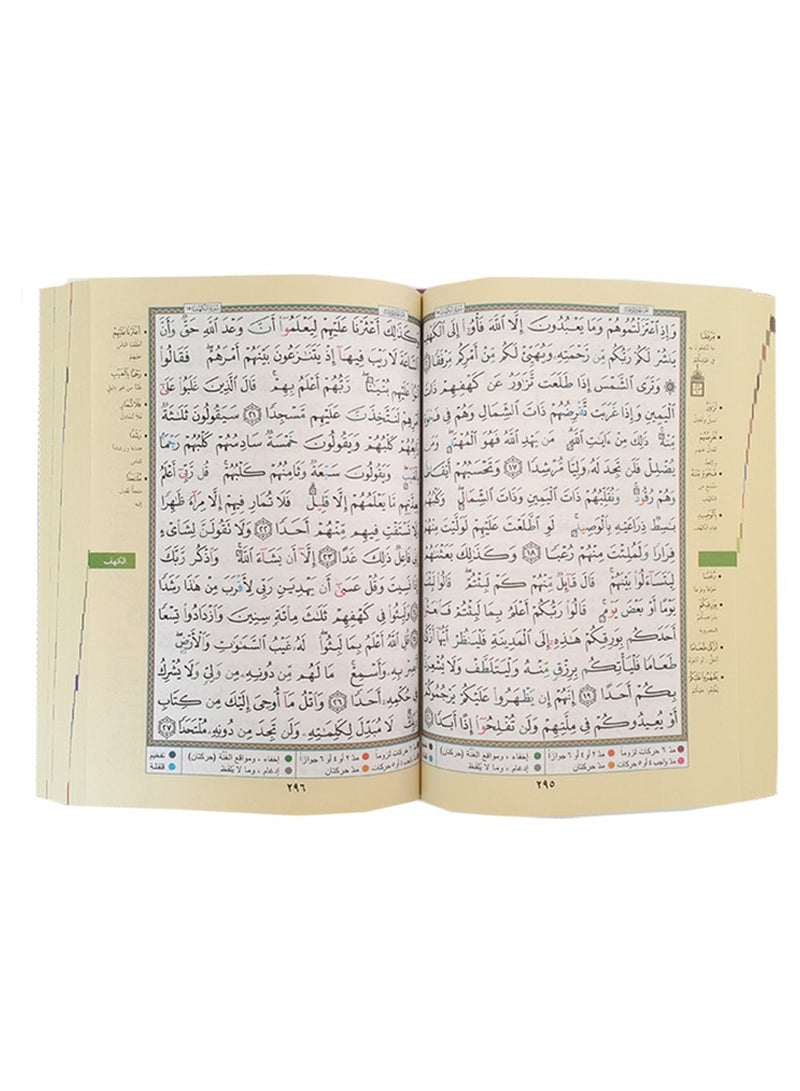 سورة الكهف ١٨
وَإِذِ ٱعْتَزَلْتُمُوهُمْ وَمَا يَعْبُدُونَ إِلَّا ٱللَّهَ فَأْوُۥٓا۟ إِلَى ٱلْكَهْفِ
يَنشُرْ لَكُمْ رَبُّكُم مِّن رَّحْمَتِهِۦ وَيُهَيِّئْ لَكُم مِّنْ أَمْرِكُم مِّرْفَقًا
۞ وَتَرَى ٱلشَّمْسَ إِذَا طَلَعَت تَّزَٰوَرُ عَن كَهْفِهِمْ ذَاتَ
ٱلْيَمِينِ وَإِذَا غَرَبَت تَّقْرِضُهُمْ ذَاتَ ٱلشِّمَالِ وَهُمْ فِى فَجْوَةٍ
مِّنْهُ ۚ ذَٰلِكَ مِنْ ءَايَٰتِ ٱللَّهِ ۗ مَن يَهْدِ ٱللَّهُ فَهُوَ ٱلْمُهْتَدِ ۖ وَمَن
يُضْلِلْ فَلَن تَجِدَ لَهُۥ وَلِيًّا مُّرْشِدًا ١٧ وَتَحْسَبُهُمْ أَيْقَاظًا
وَهُمْ رُقُودٌ ۚ وَنُقَلِّبُهُمْ ذَاتَ ٱلْيَمِينِ وَذَاتَ ٱلشِّمَالِ ۖ وَكَلْبُهُم
بَٰسِطٌ ذِرَاعَيْهِ بِٱلْوَصِيدِ ۚ لَوِ ٱطَّلَعْتَ عَلَيْهِمْ لَوَلَّيْتَ مِنْهُمْ
فِرَارًا وَلَمُلِئْتَ مِنْهُمْ رُعْبًا ١٨ وَكَذَٰلِكَ بَعَثْنَٰهُمْ
لِيَتَسَآءَلُوا۟ بَيْنَهُمْ ۚ قَالَ قَآئِلٌ مِّنْهُمْ كَمْ لَبِثْتُمْ ۖ قَالُوا۟ لَبِثْنَا
يَوْمًا أَوْ بَعْضَ يَوْمٍ ۚ قَالُوا۟ رَبُّكُمْ أَعْلَمُ بِمَا لَبِثْتُمْ فَٱبْعَثُوٓا۟
أَحَدَكُم بِوَرِقِكُمْ هَٰذِهِۦٓ إِلَى ٱلْمَدِينَةِ فَلْيَنظُرْ أَيُّهَآ أَزْكَىٰ
طَعَامًا فَلْيَأْتِكُم بِرِزْقٍ مِّنْهُ وَلْيَتَلَطَّفْ وَلَا يُشْعِرَنَّ
بِكُمْ أَحَدًا ١٩ إِنَّهُمْ إِن يَظْهَرُوا۟ عَلَيْكُمْ يَرْجُمُوكُمْ
أَوْ يُعِيدُوكُمْ فِى مِلَّتِهِمْ وَلَن تُفْلِحُوٓا۟ إِذًا أَبَدًا
مدّ ٦ حركات لزوماً مدّ ٢ أو ٤ أو ٦ جوازاً إخفاء ، ومواقع الغنّة (حركتان)
مدّ واجب ٤ أو ٥ حركات مدّ حركتان إدغام ، وما لا يُلفظ
٢٩٥
سورة الكهف ١٨
وَكَذَٰلِكَ أَعْثَرْنَا عَلَيْهِمْ لِيَعْلَمُوٓا۟ أَنَّ وَعْدَ ٱللَّهِ حَقٌّ وَأَنَّ
ٱلسَّاعَةَ لَا رَيْبَ فِيهَآ إِذْ يَتَنَٰزَعُونَ بَيْنَهُمْ أَمْرَهُمْ ۖ فَقَالُوا۟
ٱبْنُوا۟ عَلَيْهِم بُنْيَٰنًا ۖ رَّبُّهُمْ أَعْلَمُ بِهِمْ ۚ قَالَ ٱلَّذِينَ غَلَبُوا۟ عَلَىٰٓ
أَمْرِهِمْ لَنَتَّخِذَنَّ عَلَيْهِم مَّسْجِدًا ٢١ سَيَقُولُونَ ثَلَٰثَةٌ
رَّابِعُهُمْ كَلْبُهُمْ وَيَقُولُونَ خَمْسَةٌ سَادِسُهُمْ كَلْبُهُمْ رَجْمًۢا
بِٱلْغَيْبِ ۖ وَيَقُولُونَ سَبْعَةٌ وَثَامِنُهُمْ كَلْبُهُمْ ۚ قُل رَّبِّىٓ أَعْلَمُ
بِعِدَّتِهِم مَّا يَعْلَمُهُمْ إِلَّا قَلِيلٌ ۗ فَلَا تُمَارِ فِيهِمْ إِلَّا مِرَآءً ظَٰهِرًا
وَلَا تَسْتَفْتِ فِيهِم مِّنْهُمْ أَحَدًا ٢٢ وَلَا تَقُولَنَّ لِشَا۟ىْءٍ
إِنِّى فَاعِلٌ ذَٰلِكَ غَدًا ٢٣ إِلَّآ أَن يَشَآءَ ٱللَّهُ ۚ وَٱذْكُر رَّبَّكَ
إِذَا نَسِيتَ وَقُلْ عَسَىٰٓ أَن يَهْدِيَنِ رَبِّى لِأَقْرَبَ مِنْ هَٰذَا رَشَدًا
وَلَبِثُوا۟ فِى كَهْفِهِمْ ثَلَٰثَ مِا۟ئَةٍ سِنِينَ وَٱزْدَادُوا۟ تِسْعًا
قُلِ ٱللَّهُ أَعْلَمُ بِمَا لَبِثُوا۟ ۖ لَهُۥ غَيْبُ ٱلسَّمَٰوَٰتِ وَٱلْأَرْضِ ۖ
أَبْصِرْ بِهِۦ وَأَسْمِعْ ۚ مَا لَهُم مِّن دُونِهِۦ مِن وَلِىٍّ وَلَا يُشْرِكُ
فِى حُكْمِهِۦٓ أَحَدًا ٢٦ وَٱتْلُ مَآ أُوحِىَ إِلَيْكَ مِن كِتَابِ
رَبِّكَ ۖ لَا مُبَدِّلَ لِكَلِمَٰتِهِۦ وَلَن تَجِدَ مِن دُونِهِۦ مُلْتَحَدًا ٢٧
حركات لزوماً مدّ ٢ أو ٤ أو ٦ جوازاً إخفاء ، ومواقع الغنّة (حركتان) تفخيم
٤ أو ٥ حركات مدّ حركتان إدغام ، وما لا يُلفظ قلقلة
٢٩٦
مِرْفَقًا
تَزَاوَرُ
تَقْرِضُهُمْ
فَجْوَةٍ مِنْهُ
بِالْوَصِيدِ
رُعْبًا
بِوَرِقِكُمْ
أَزْكَى طَعَامًا
يَظْهَرُوا عَلَيْكُمْ
أَعْثَرْنَا عَلَيْهِمْ
رَجْمًا بِالْغَيْبِ
فَلَا تُمَارِ
رَشَدًا
مُلْتَحَدًا
الكهف